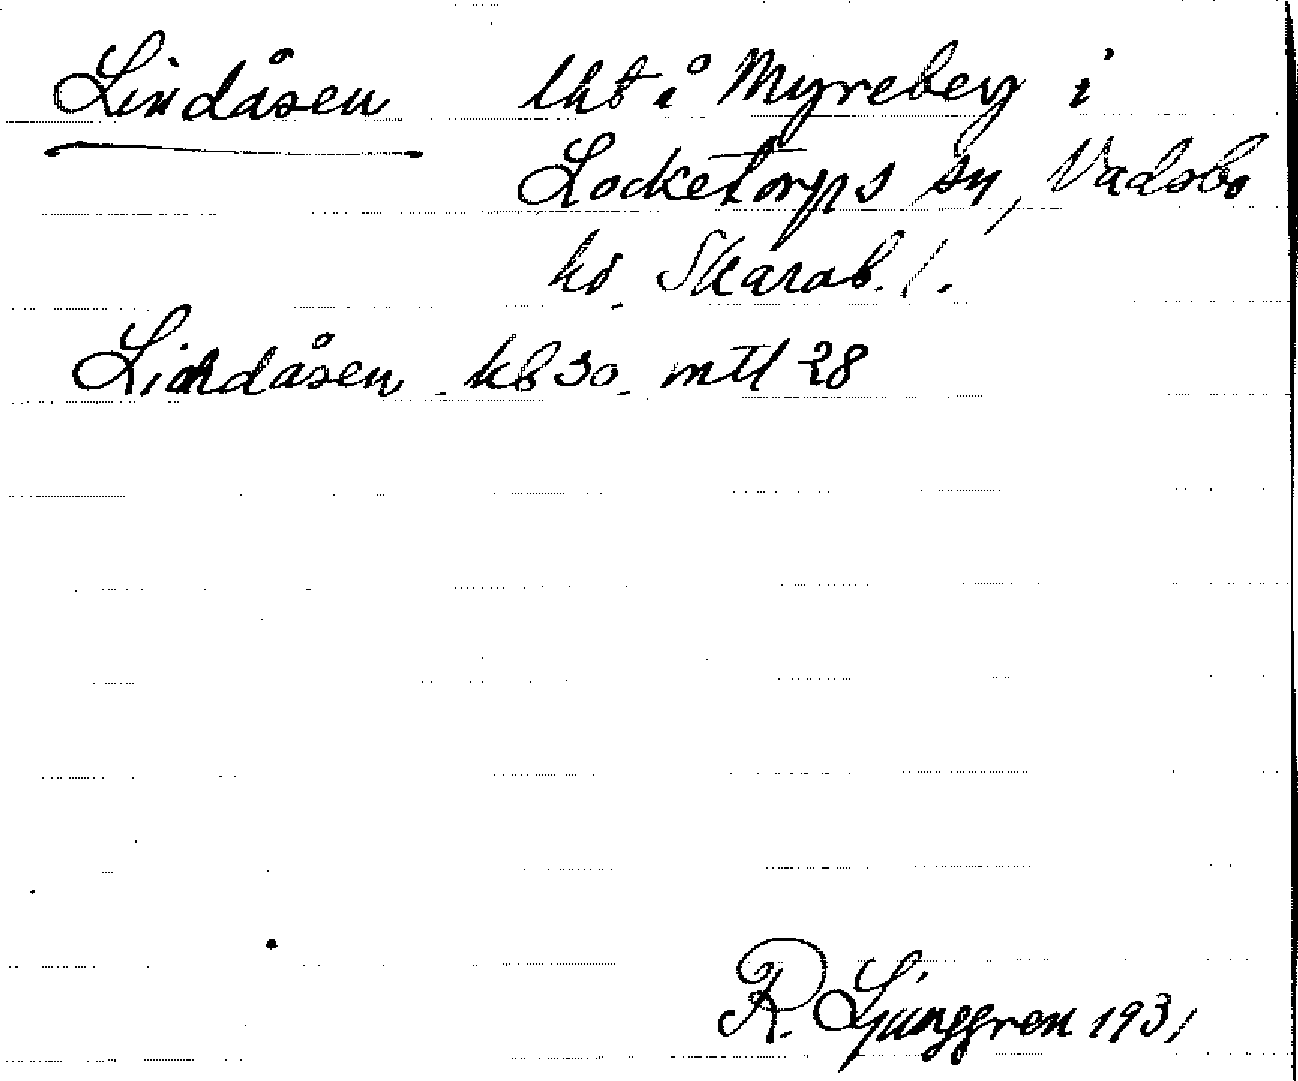 Lindåsen lht i Myreberg i
Locketorps sn, Vadsbo
hd. Skarab. l.
Lindåsen. kb 30. mtl 28
R. Ljunggren 1931